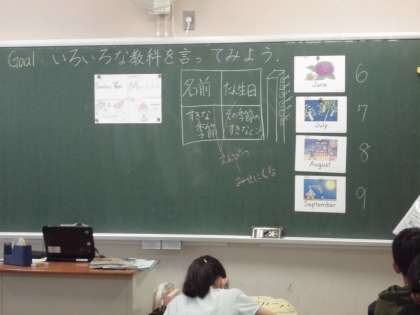 Goal いろいろな教科を言ってみよう.
名前
たん生日
すきな
季節
その季節の
すきなところ
June
6
July
7
August
8
September
9